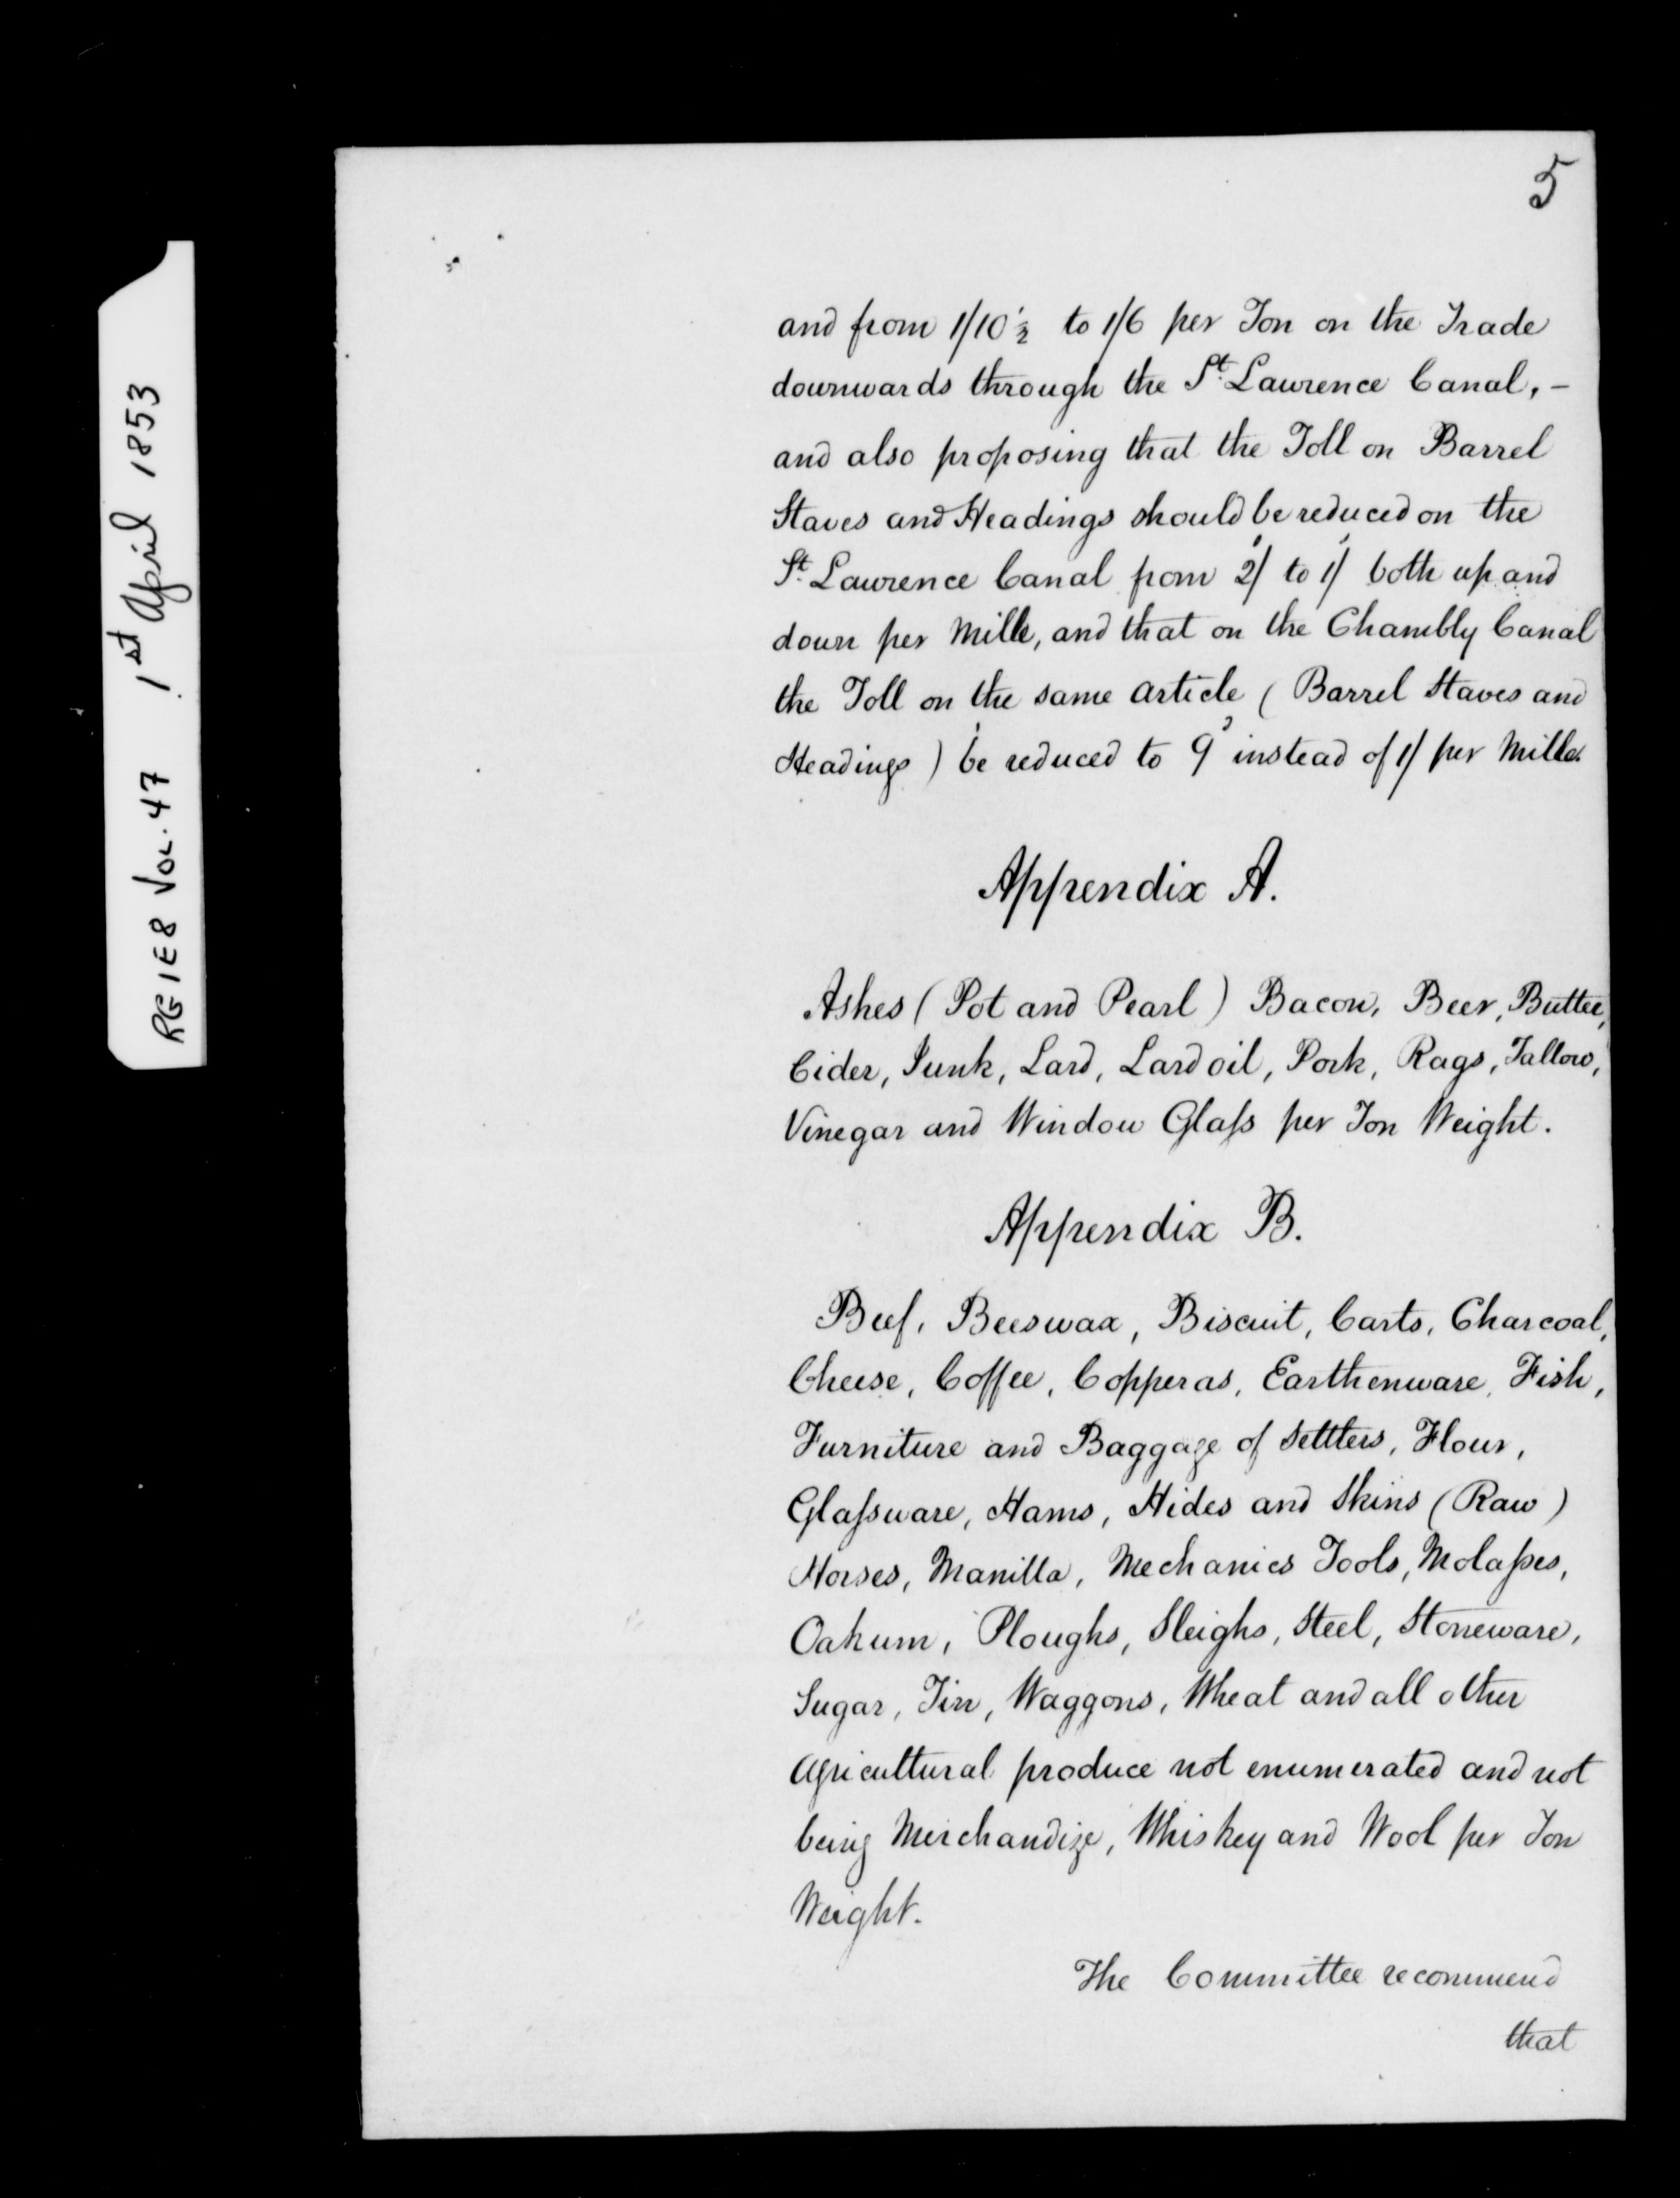 RG1E8 Vol. 47 1st April 1853
5
and from 1/10½ to 1/6 per Ton on the Trade
downwards through the St. Lawrence Canal, –
and also proposing that the Toll on Barrel
Staves and Headings should be reduced on the
St. Lawrence Canal from 2/ to 1/ both up and
down per Mille, and that on the Chambly Canal
the Toll on the same article ( Barrel Staves and
Headings ) be reduced to 9d instead of 1/ per Mille.
Appendix A.
Ashes ( Pot and Pearl ) Bacon, Beer, Butter,
Cider, Junk, Lard, Lard oil, Pork, Rags, Tallow,
Vinegar and Window Glaſs per Ton Weight.
Appendix B.
Beef, Beeswax, Biscuit, Carts, Charcoal,
Cheese, Coffee, Copperas, Earthenware, Fish,
Furniture and Baggage of Settlers, Flour,
Glaſsware, Hams, Hides and Skins ( Raw )
Horses, Manilla, Mechanics Tools, Molaſses,
Oakum, Ploughs, Sleighs, Steel, Stoneware,
Sugar, Tin, Waggons, Wheat and all other
Agricultural produce not enumerated and not
being Merchandize, Whiskey and Wool per Ton
Weight.
The Committee recommend
that